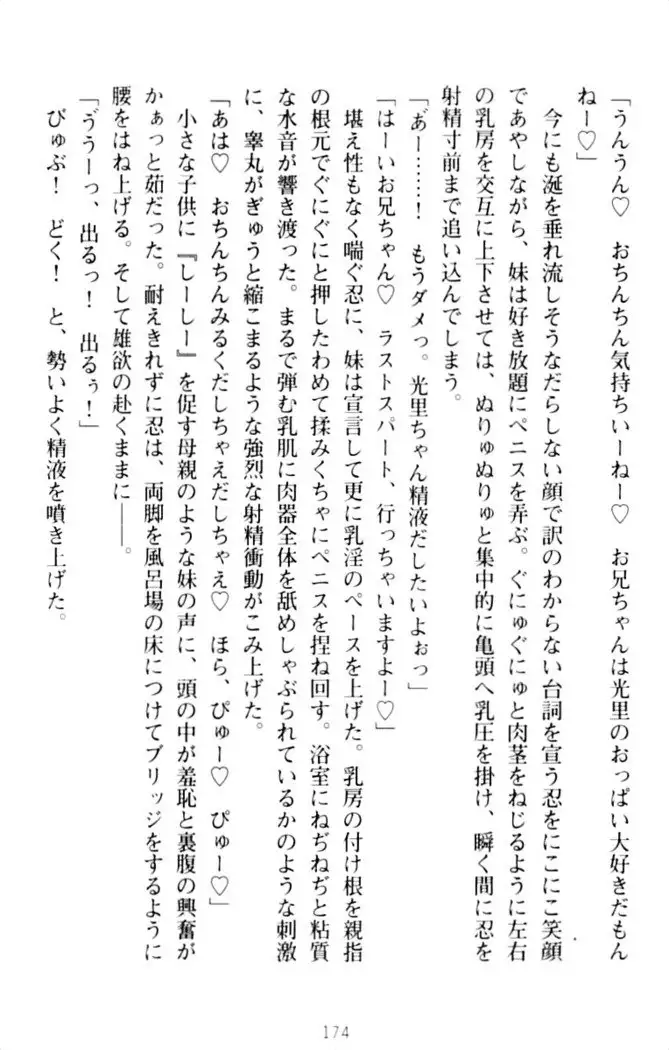 「うんうん♡　おちんちん気持ちいーねー♡　お兄ちゃんは光里のおっぱい大好きだもん
ねー♡」
今にも涎を垂れ流しそうなだらしない顔で訳のわからない台詞を宣う忍をにこにこ笑顔
であやしながら、妹は好き放題にペニスを弄ぶ。ぐにゅぐにゅと肉茎をねじるように左右
の乳房を交互に上下させては、ぬりゅぬりゅと集中的に亀頭へ乳圧を掛け、瞬く間に忍を
射精寸前まで追い込んでしまう。
「あ゛ー……！　もうダメっ。光里ちゃん精液だしたいよぉっ」
「はーいお兄ちゃん♡　ラストスパート、行っちゃいますよー♡」
堪え性もなく喘ぐ忍に、妹は宣言して更に乳淫のペースを上げた。乳房の付け根を親指
の根元でぐにぐにと押したわめて揉みくちゃにペニスを捏ね回す。浴室にねぢねぢと粘質
な水音が響き渡った。まるで弾む乳肌に肉器全体を舐めしゃぶられているかのような刺激
に、睾丸がぎゅうと縮こまるような強烈な射精衝動がこみ上げた。
「あは♡　おちんちんみるくだしちゃえだしちゃえ♡　ほら、ぴゅー♡　ぴゅー♡」
小さな子供に『しーしー』を促す母親のような妹の声に、頭の中が羞恥と裏腹の興奮が
かぁっと茹だった。耐えきれずに忍は、両脚を風呂場の床につけてブリッジをするように
腰をはね上げる。そして雄欲の赴くままに――。
「ゔうーっ、出るっ！　出るぅ！」
ぴゅぶ！　どく！　と、勢いよく精液を噴き上げた。
174